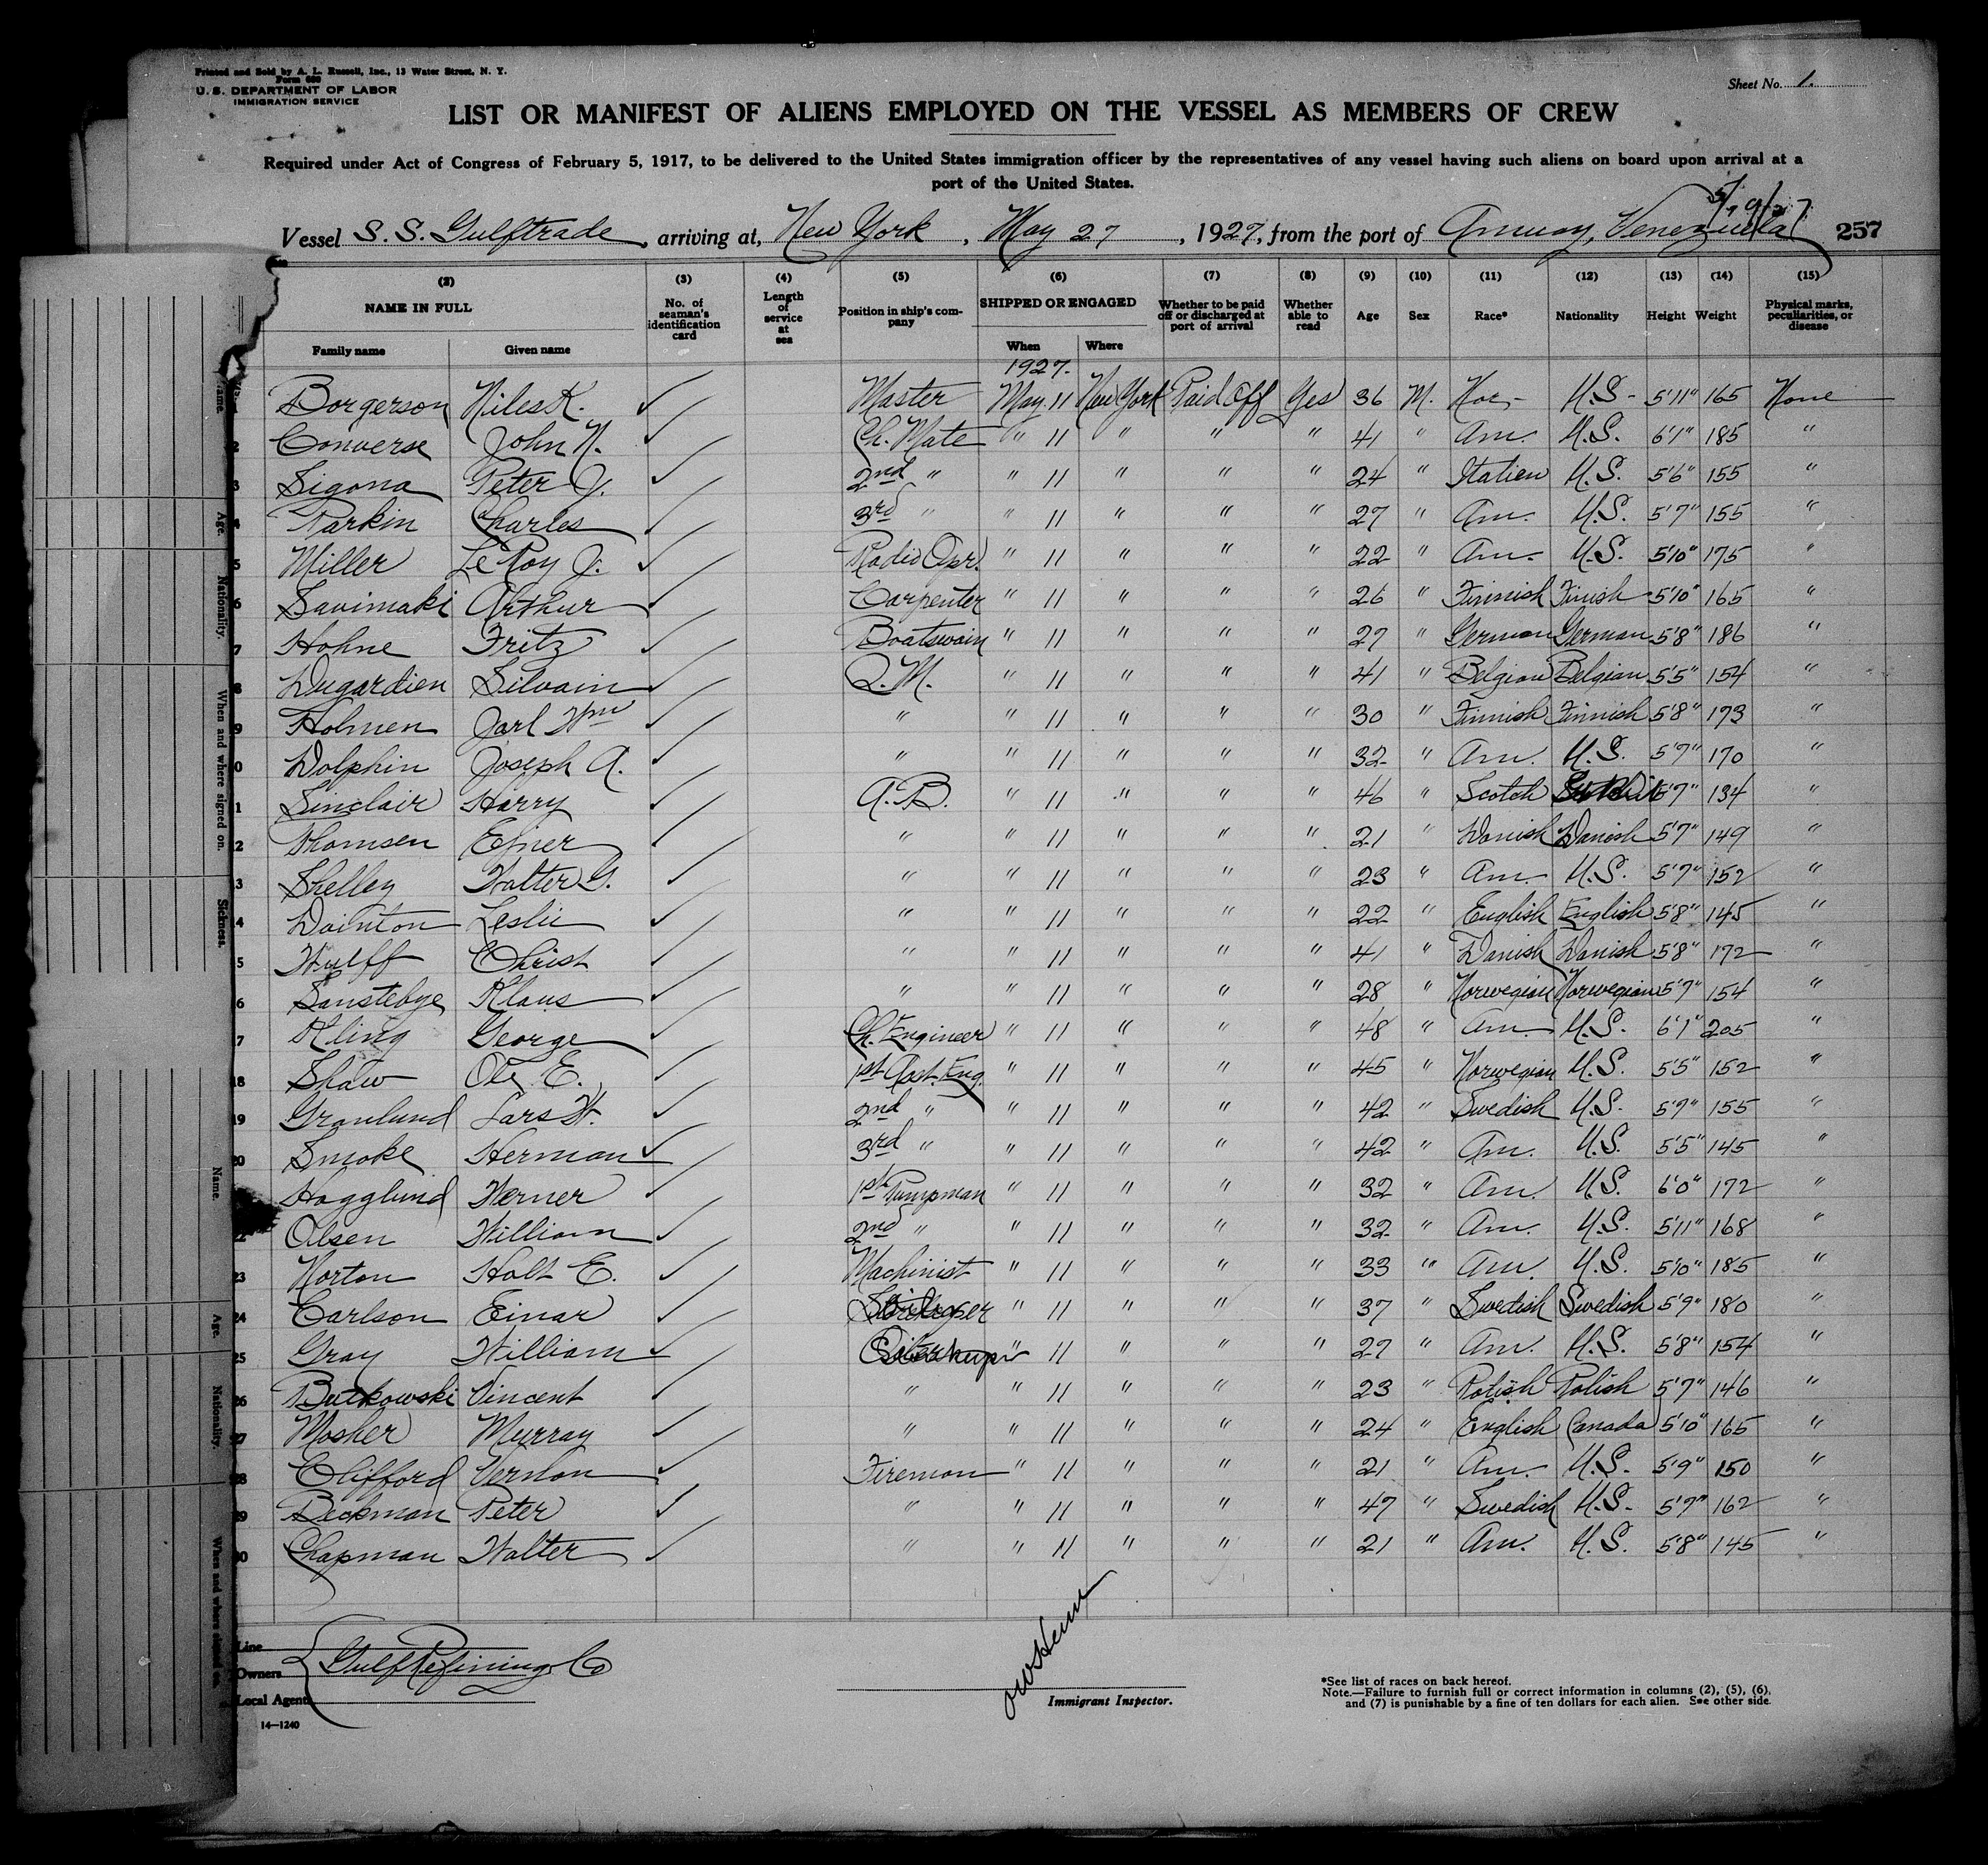 Printed and Sold by A. L. Russell, Inc., 13 Water Street, N. Y.
Form 680
U. S. DEPARTMENT OF LABOR
IMMIGRATION SERVICE
Sheet No. 1.
LIST OR MANIFEST OF ALIENS EMPLOYED ON THE VESSEL AS MEMBERS OF CREW
Required under Act of Congress of February 5, 1917, to be delivered to the United States immigration officer by the representatives of any vessel having such aliens on board upon arrival at a
port of the United States.
Vessel S. S. Gulftrade, arriving at, New York, May 27, 1927, from the port of Amuay, Venezuela 257
(2) (3) (4) (5) (6) (7) (8) (9) (10) (11) (12) (13) (14) (15)
NAME IN FULL No. of seaman's identification card Length of service at sea Position in ship's company SHIPPED OR ENGAGED Whether to be paid off or discharged at port of arrival Whether able to read Age Sex Race* Nationality Height Weight Physical marks, peculiarities, or disease
Family name Given name When Where
1927.
Borgerson Niles K. ✓ Master May 11 New York Paid Off Yes 36 M. Nor,- U.S- 5'11" 165 None
2 Converse John N. ✓ Ch. Mate " 11 " " " 41 " Am. U.S. 6'1" 185 "
3 Sigona Peter J. ✓ 2nd " " 11 " " " 24 " Italien U.S. 5'6" 155 "
4 Parkin Charles ✓ 3rd " " 11 " " " 27 " Am. U.S. 5'7" 155 "
5 Miller LeRoy J. ✓ Radio Opr. " 11 " " " 22 " Am. U.S. 5'10" 175 "
6 Savimaki Arthur ✓ Carpenter " 11 " " " 26 " Finnish Finish 5'10" 165 "
7 Hohne Fritz ✓ Boatswain " 11 " " " 27 " German German 5'8" 186 "
8 Dugardien Silvain ✓ Q.M. " 11 " " " 41 " Belgian Belgian 5'5" 154 "
9 Holmen Jarl Wm ✓ " " 11 " " " 30 " Finnish Finnish 5'8" 173 "
0 Dolphin Joseph A. ✓ " " 11 " " " 32 " Am. U.S. 5'7" 170 "
1 Sinclair Harry ✓ A.B. " 11 " " " 46 " Scotch 5'7" 134 "
2 Thomsen Ejner ✓ " " 11 " " " 21 " Danish Danish 5'7" 149 "
3 Shelley Walter G. ✓ " " 11 " " " 23 " Am. U.S. 5'7" 152 "
4 Dainton Leslie ✓ " " 11 " " " 22 " English English 5'8" 145 "
5 Wulff Christ ✓ " " 11 " " " 41 " Danish Danish 5'8" 172 "
6 Sanstebye Klaus ✓ " " 11 " " " 28 " Norwegian Norwegian 5'7" 154 "
7 Kling George ✓ Ch. Engineer " 11 " " " 48 " Am U.S. 6'1" 205 "
18 Shaw Ole E. ✓ 1st Asst. Eng. " 11 " " " 45 " Norwegian U.S. 5'5" 152 "
19 Granlund Lars W. ✓ 2nd " " 11 " " " 42 " Swedish U.S. 5'7" 155 "
20 Smoke Herman ✓ 3rd " " 11 " " " 42 " Am. U.S. 5'5" 145 "
Hagglund Werner ✓ 1st Pumpman " 11 " " " 32 " Am. U.S. 6'0" 172 "
22 Olsen William ✓ 2nd " " 11 " " " 32 " Am. U.S. 5'11" 168 "
23 Norton Holt E. ✓ Machinist " 11 " " " 33 " Am. U.S. 5'10" 185 "
24 Carlson Einar ✓ " 11 " " " 37 " Swedish Swedish 5'9" 180 "
25 Gray William ✓ " 11 " " " 27 " Am. U.S. 5'8" 154 "
26 Butkowski Vincent ✓ " " 11 " " " 23 " Polish Polish 5'7" 146 "
27 Mosher Murray ✓ " " 11 " " " 24 " English Canada 5'10" 165 "
28 Clifford Vernon ✓ Fireman " 11 " " " 21 " Am. U.S. 5'9" 150 "
29 Beckman Peter ✓ " " 11 " " " 47 " Swedish U.S. 5'7" 162 "
30 Chapman Walter ✓ " " 11 " " " 21 " Am. U.S. 5'8" 145 "
Line
Owners Gulf Refining Co
Local Agents
14—1240
Immigrant Inspector.
*See list of races on back hereof.
Note.—Failure to furnish full or correct information in columns (2), (5), (6),
and (7) is punishable by a fine of ten dollars for each alien. See other side.
Name.
Age.
Nationality.
When and where signed on.
Sickness.
Name.
Age.
Nationality.
When and where signed on.